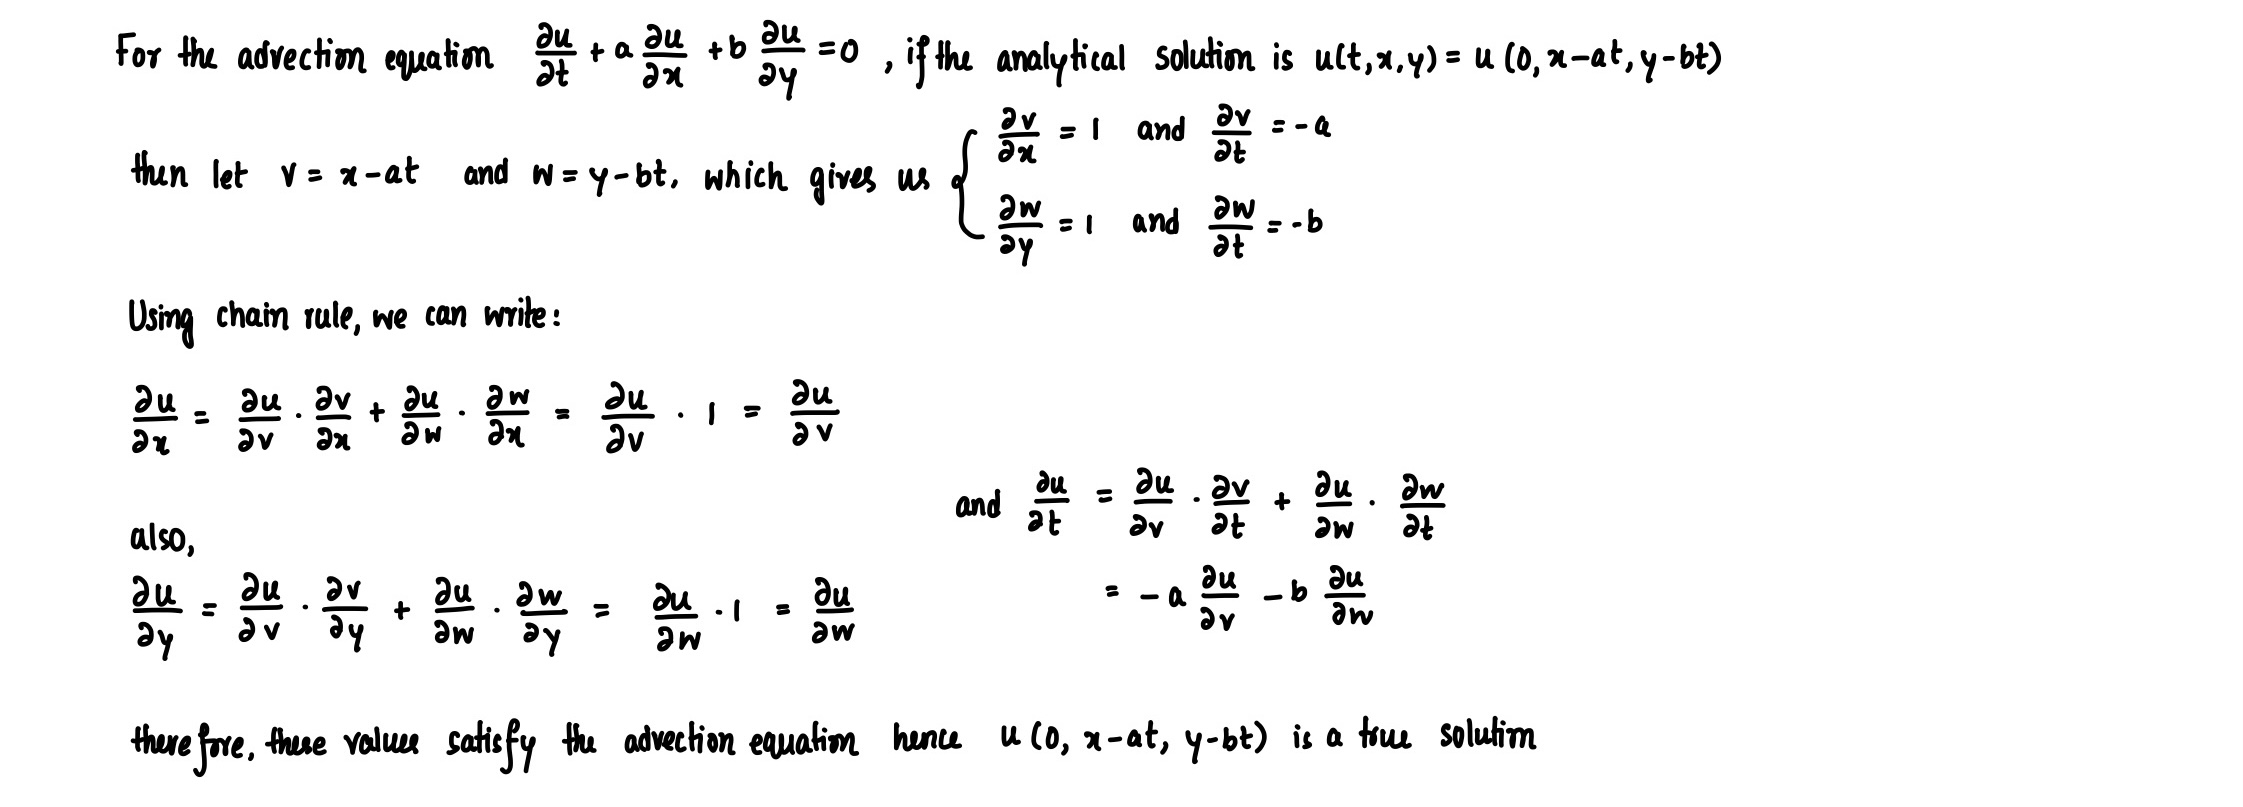 For the advection equation ∂u/∂t + a ∂u/∂x + b ∂u/∂y = 0 , if the analytical solution is u(t,x,y) = u (0, x-at, y-bt)
then let v = x-at and w = y-bt, which gives us { ∂v/∂x = 1 and ∂v/∂t = -a
∂w/∂y = 1 and ∂w/∂t = -b
Using chain rule, we can write:
∂u/∂x = ∂u/∂v · ∂v/∂x + ∂u/∂w · ∂w/∂x = ∂u/∂v · 1 = ∂u/∂v
also,
∂u/∂y = ∂u/∂v · ∂v/∂y + ∂u/∂w · ∂w/∂y = ∂u/∂w · 1 = ∂u/∂w
and ∂u/∂t = ∂u/∂v · ∂v/∂t + ∂u/∂w · ∂w/∂t
= -a ∂u/∂v - b ∂u/∂w
therefore, these values satisfy the advection equation hence u (0, x-at, y-bt) is a true solution